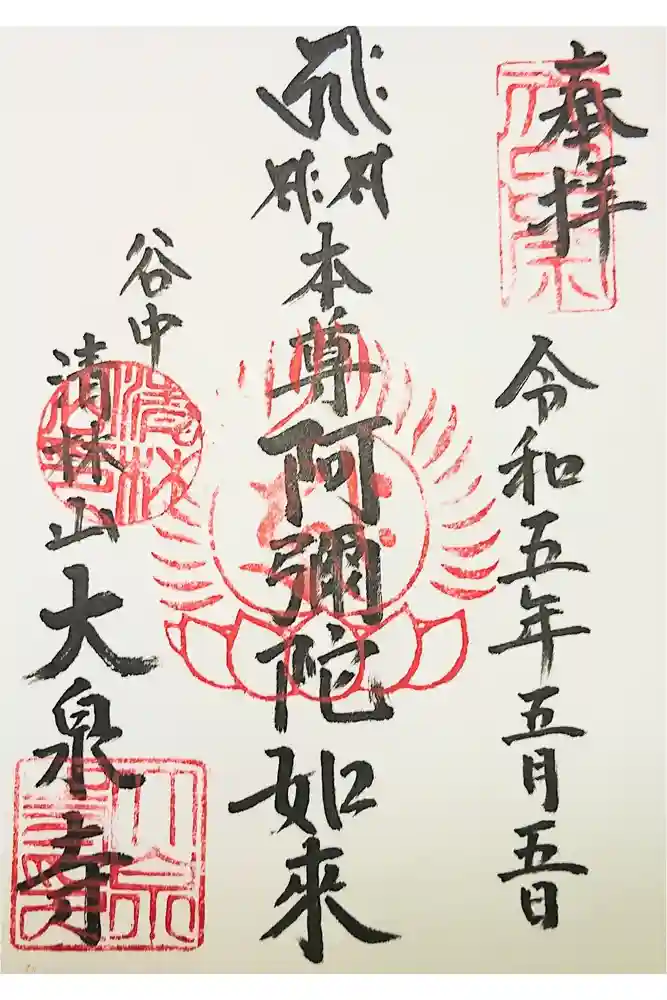 奉拝
令和五年五月五日
本尊阿彌陀如來
谷中
清林山大泉寺